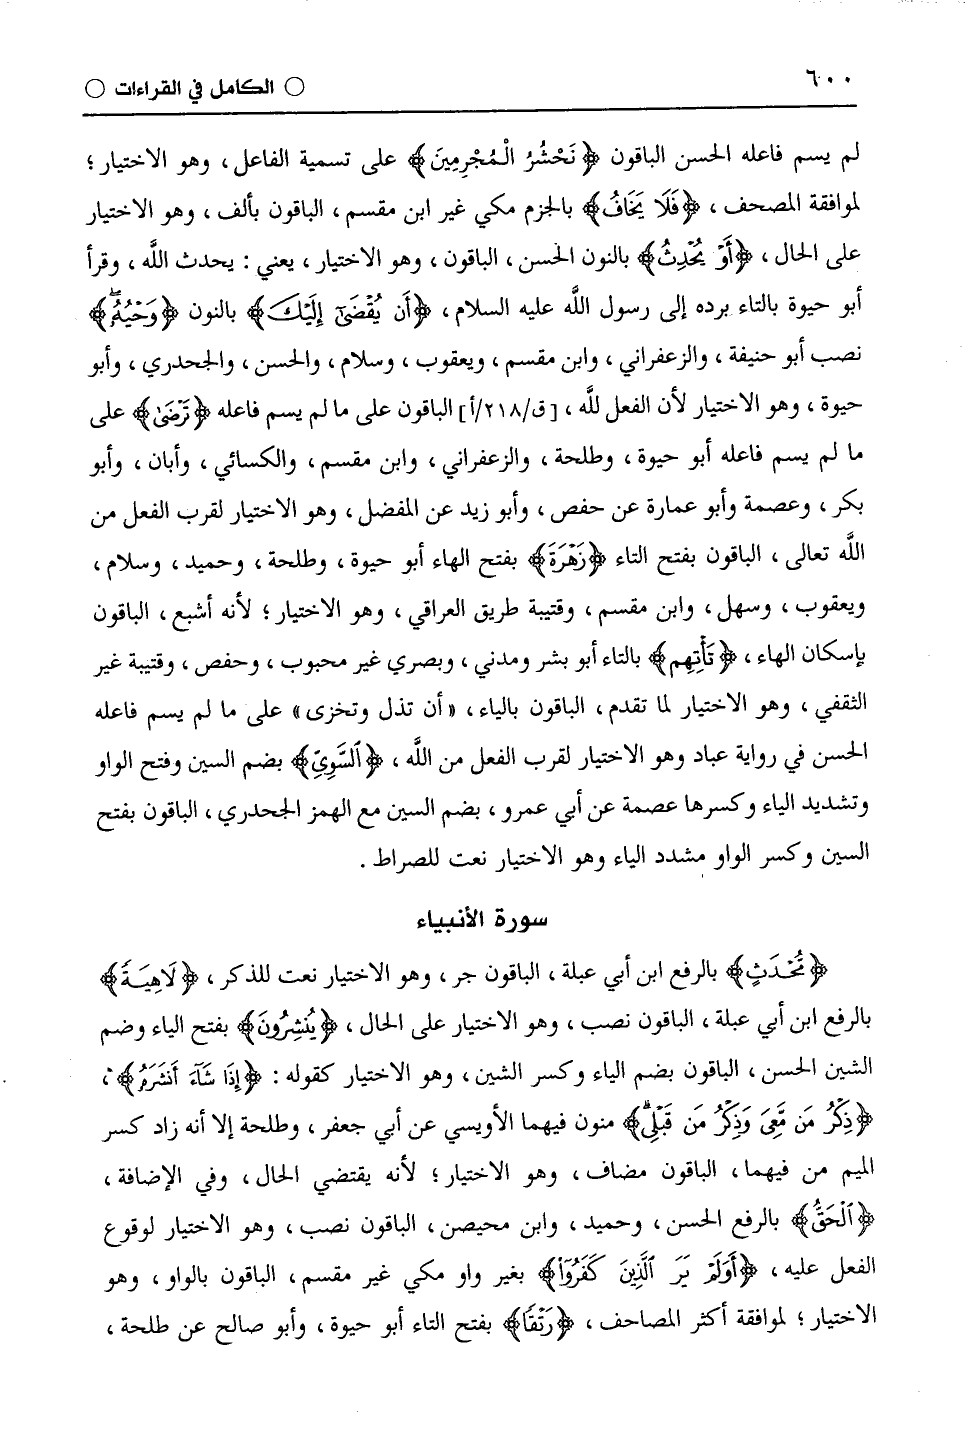 ٦٠٠
○ الكامل في القراءات ○
لم يسم فاعله الحسن الباقون ﴿نَحْشُرُ الْمُجْرِمِينَ﴾ على تسمية الفاعل ، وهو الاختيار ؛
لموافقة المصحف ، ﴿فَلَا يَخَافُ﴾ بالجزم مكي غير ابن مقسم ، الباقون بألف ، وهو الاختيار
على الحال ، ﴿أَوْ يُحْدِثُ﴾ بالنون الحسن ، الباقون ، وهو الاختيار ، يعني : يحدث اللَّه ، وقرأ
أبو حيوة بالتاء برده إلى رسول اللَّه عليه السلام ، ﴿أَن يُقْضَىٰٓ إِلَيْكَ﴾ بالنون ﴿وَحْيُهُۥ﴾
نصب أبو حنيفة ، والزعفراني ، وابن مقسم ، ويعقوب ، وسلام ، والحسن ، والجحدري ، وأبو
حيوة ، وهو الاختيار لأن الفعل للَّه ، [ق/٢١٨/أ] الباقون على ما لم يسم فاعله ﴿تَرْضَىٰ﴾ على
ما لم يسم فاعله أبو حيوة ، وطلحة ، والزعفراني ، وابن مقسم ، والكسائي ، وأبان ، وأبو
بكر ، وعصمة وأبو عمارة عن حفص ، وأبو زيد عن المفضل ، وهو الاختيار لقرب الفعل من
اللَّه تعالى ، الباقون بفتح التاء ﴿زَهْرَةَ﴾ بفتح الهاء أبو حيوة ، وطلحة ، وحميد ، وسلام ،
ويعقوب ، وسهل ، وابن مقسم ، وقتيبة طريق العراقي ، وهو الاختيار ؛ لأنه أشبع ، الباقون
بإسكان الهاء ، ﴿تَأْتِهِم﴾ بالتاء أبو بشر ومدني ، وبصري غير محبوب ، وحفص ، وقتيبة غير
الثقفي ، وهو الاختيار لما تقدم ، الباقون بالياء ، «أن تذل وتخزى» على ما لم يسم فاعله
الحسن في رواية عباد وهو الاختيار لقرب الفعل من اللَّه ، ﴿ٱلسَّوِيِّ﴾ بضم السين وفتح الواو
وتشديد الياء وكسرها عصمة عن أبي عمرو ، بضم السين مع الهمز الجحدري ، الباقون بفتح
السين وكسر الواو مشدد الياء وهو الاختيار نعت للصراط .
سورة الأنبياء
﴿مُّحْدَثٍ﴾ بالرفع ابن أبي عبلة ، الباقون جر ، وهو الاختيار نعت للذكر ، ﴿لَاهِيَةً﴾
بالرفع ابن أبي عبلة ، الباقون نصب ، وهو الاختيار على الحال ، ﴿يُنشِرُونَ﴾ بفتح الياء وضم
الشين الحسن ، الباقون بضم الياء وكسر الشين ، وهو الاختيار كقوله : ﴿إِذَا شَآءَ أَنشَرَهُۥ﴾ ،
﴿ذِكْرُ مَن مَّعِىَ وَذِكْرُ مَن قَبْلِى﴾ منون فيهما الأويسي عن أبي جعفر ، وطلحة إلا أنه زاد كسر
الميم من فيهما ، الباقون مضاف ، وهو الاختيار ؛ لأنه يقتضي الحال ، وفي الإضافة ،
﴿ٱلْحَقُّ﴾ بالرفع الحسن ، وحميد ، وابن محيصن ، الباقون نصب ، وهو الاختيار لوقوع
الفعل عليه ، ﴿أَوَلَمْ يَرَ ٱلَّذِينَ كَفَرُوٓا۟﴾ بغير واو مكي غير مقسم ، الباقون بالواو ، وهو
الاختيار ؛ لموافقة أكثر المصاحف ، ﴿رَتْقًا﴾ بفتح التاء أبو حيوة ، وأبو صالح عن طلحة ،